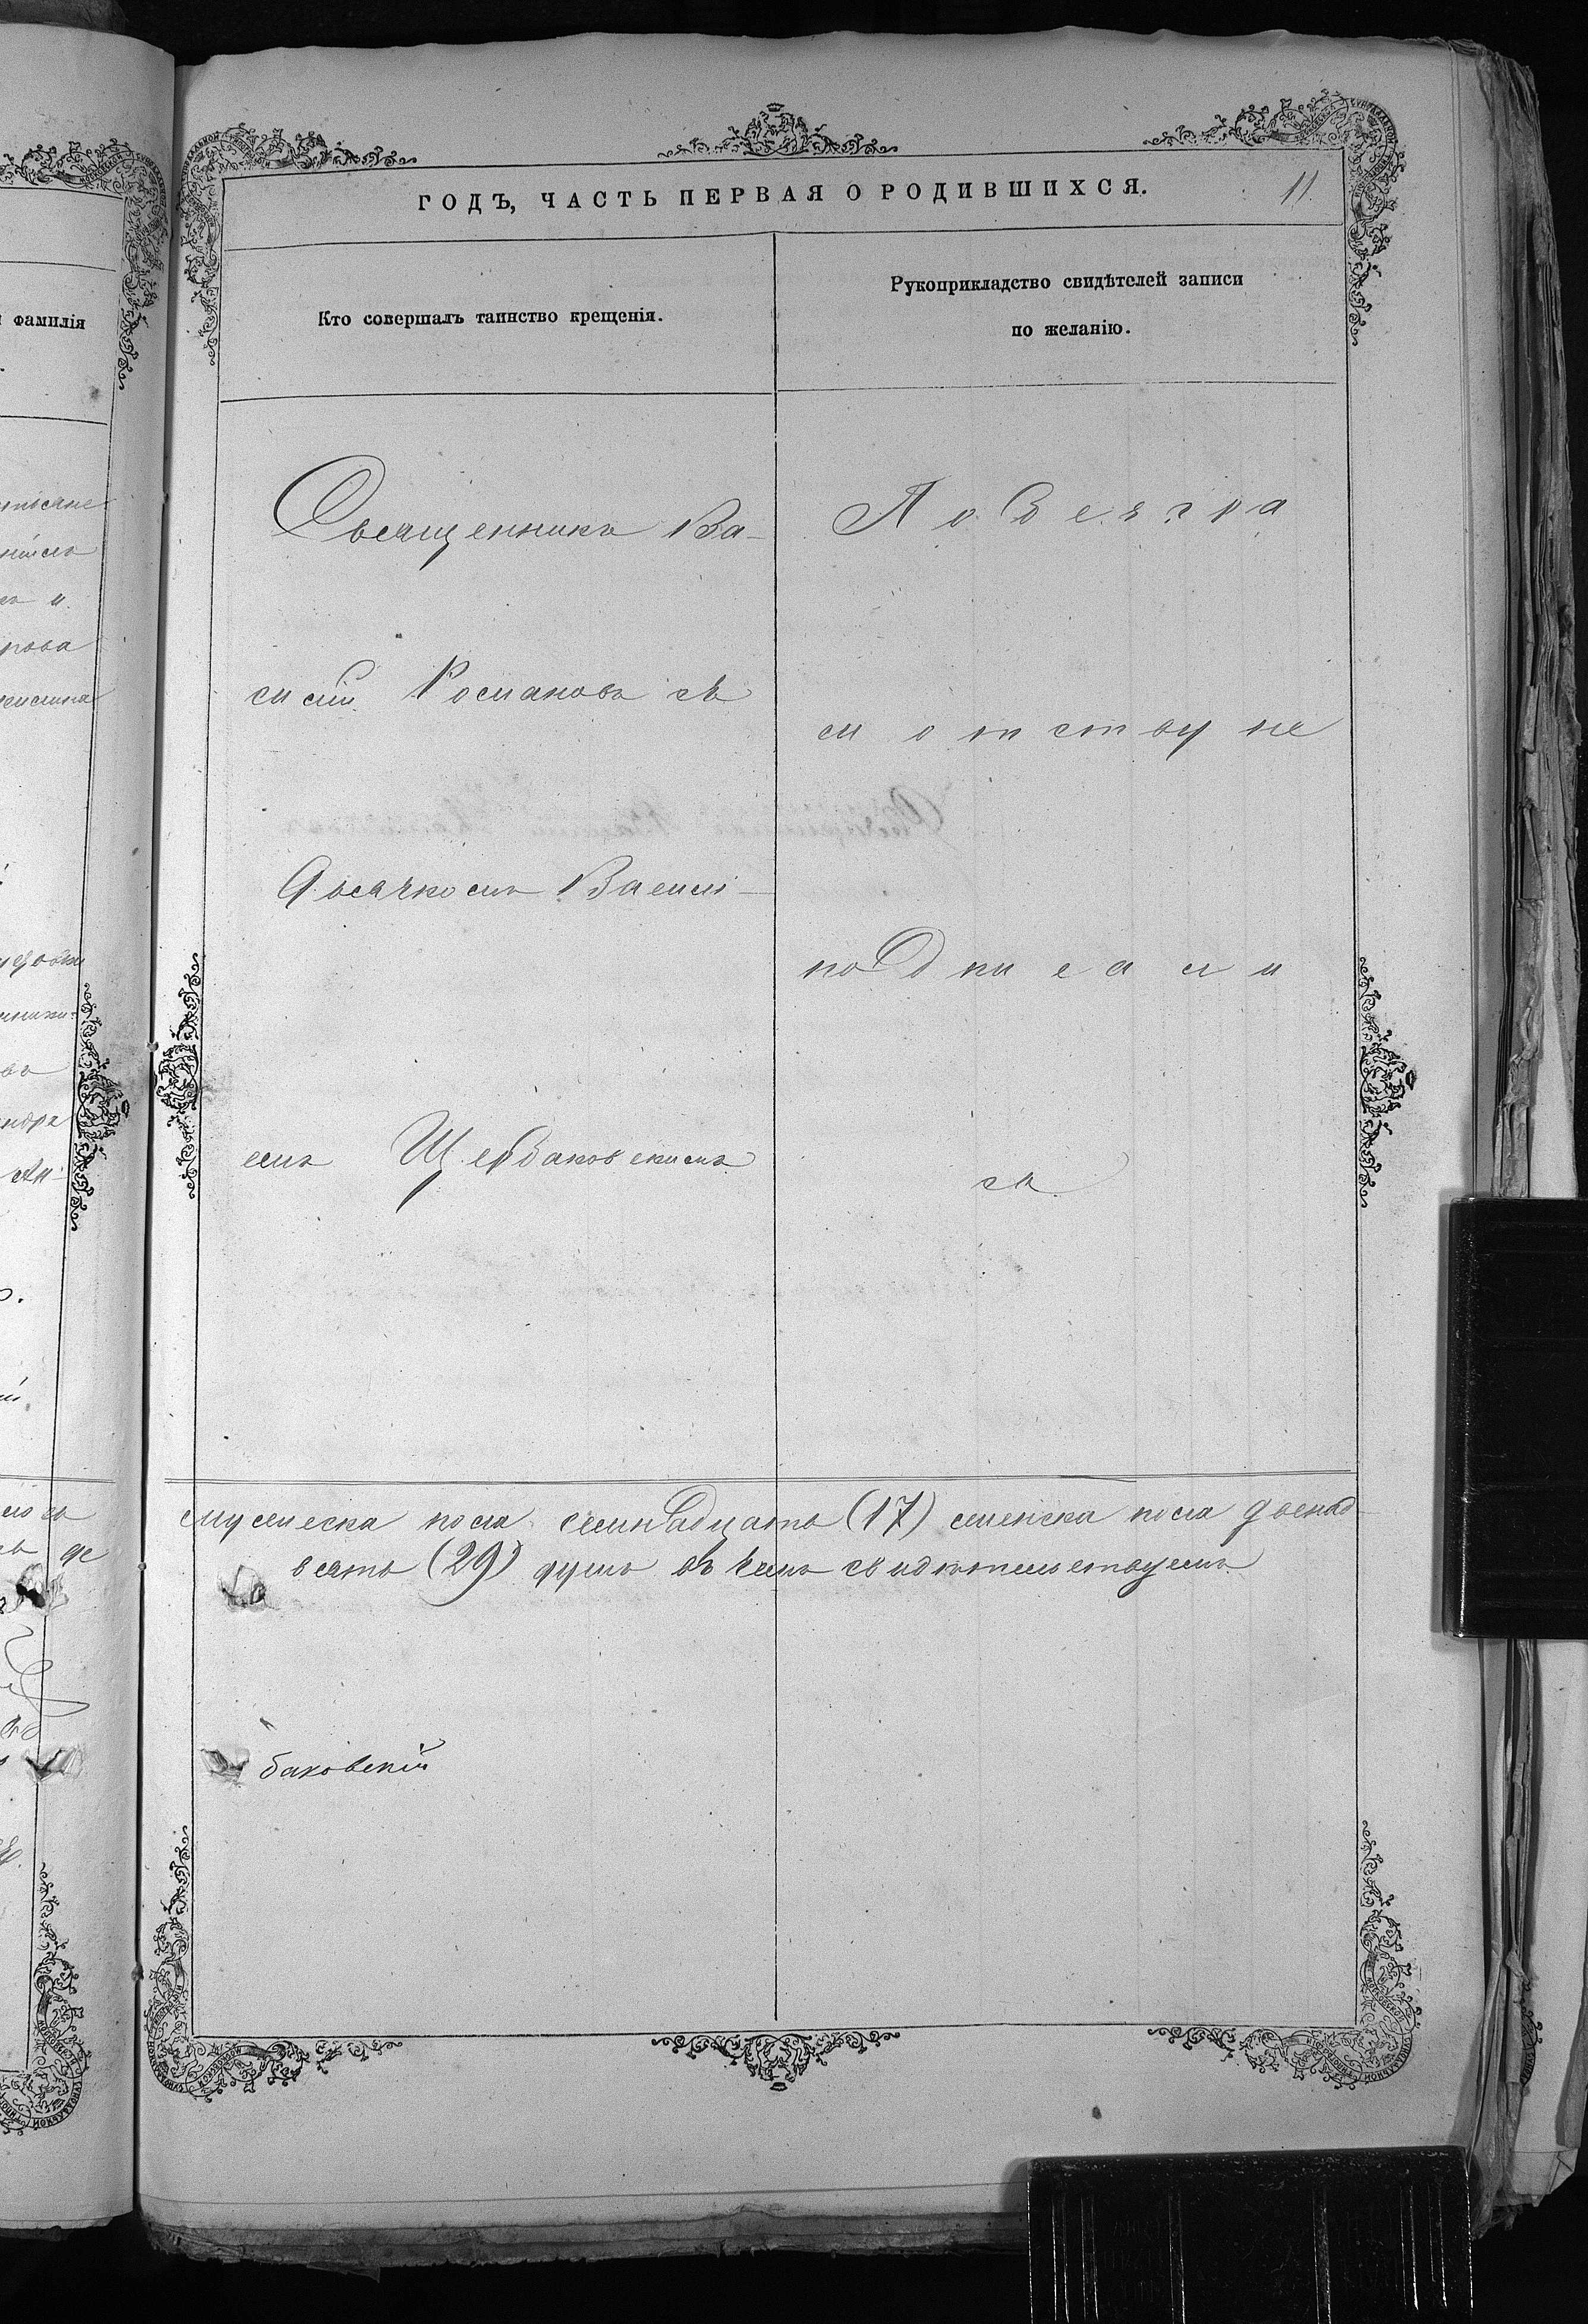 ГОДЪ, ЧАСТЬ ПЕРВАЯ О РОДИВШИХСЯ.
11.
фамилія
Кто совершалъ таинство крещенія.
Рукоприкладство свидѣтелей записи
по желанію.
Священникъ Ва-
силій Романовъ съ
Дьячкомъ Василі-
емъ Щербаковскимъ
По безгра
мотству не
подписали
сь
мужеска пола семнадцать (17) женска пола двенад-
дсять (29) душъ въ чемъ свидѣтельствуемъ
баковскій